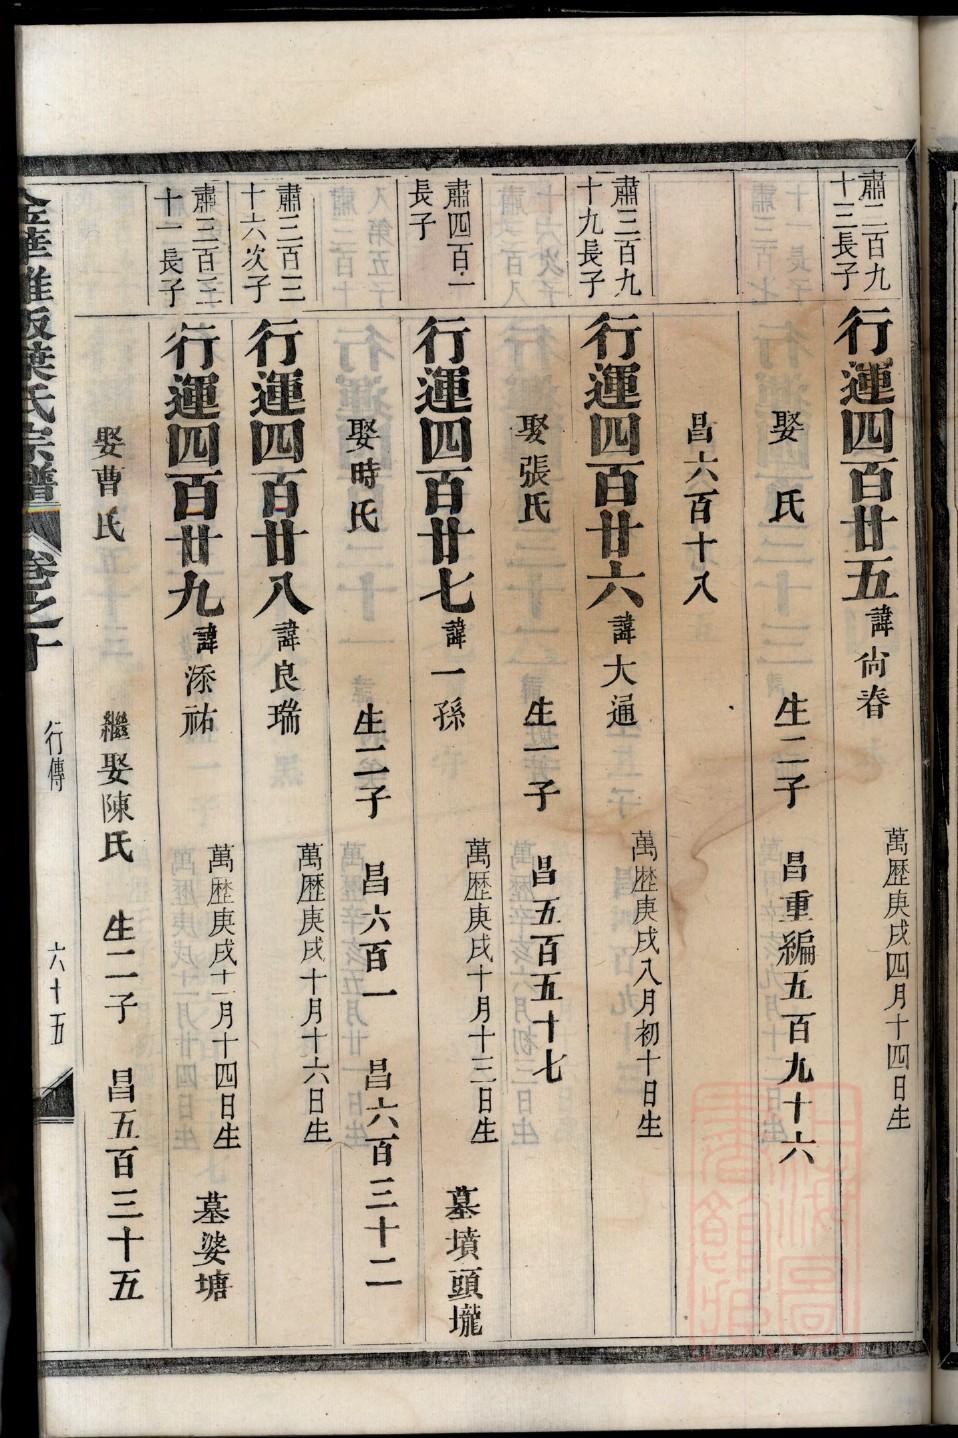 肅二百九十三長子
行運四百廿五 諱尙春 萬歷庚戌四月十四日生
娶 氏 生二子 昌重編五百九十六
昌六百十八
肅三百九十九長子
行運四百廿六 諱大通 萬歷庚戌八月初十日生
娶張氏 生一子 昌五百五十七
肅四百一長子
行運四百廿七 諱一孫 萬歷庚戌十月十三日生 墓墳頭壠
娶時氏 生二子 昌六百一 昌六百三十二
肅三百三十六次子
行運四百廿八 諱良瑞 萬歷庚戌十月十六日生
肅三百三十一長子
行運四百廿九 諱添祐 萬歷庚戌十一月十四日生 墓婆塘
娶曹氏 繼娶陳氏 生二子 昌五百三十五
葉氏宗譜 卷之十 行傳 六十五